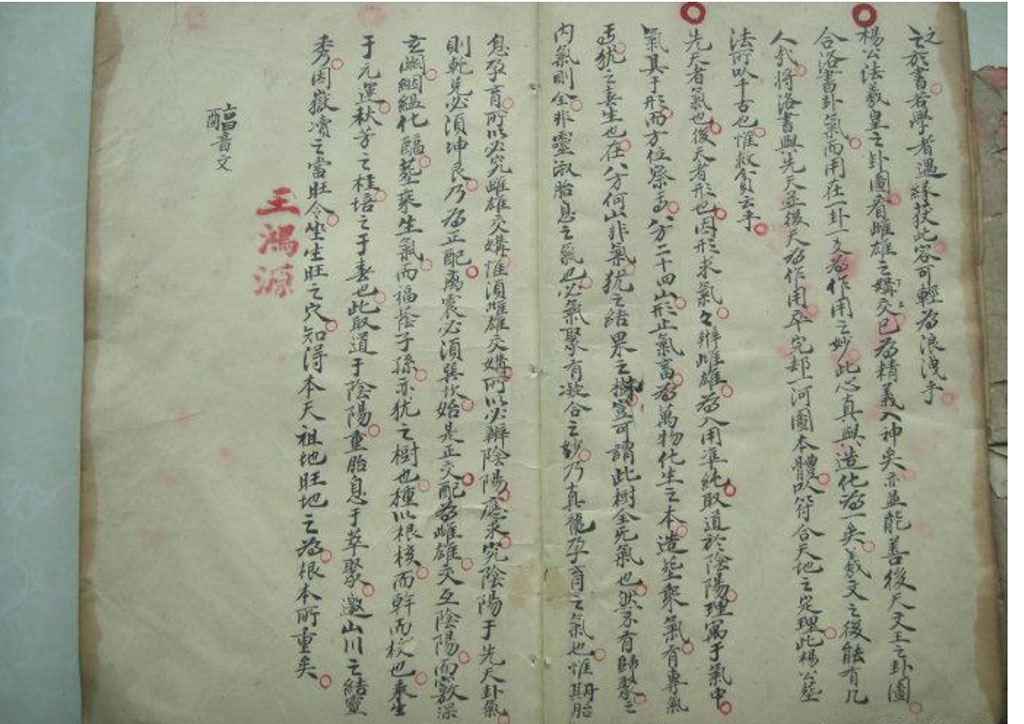 之於書若學者遇緣获此容可輕為浪洩乎
楊公法羲皇之卦圖看雌雄之媾交已為精義入神矣亦並能善後天文王之卦圖
合洛書卦氣而用在一卦一爻為作用之妙此心真與造化為一矣羲文之後能有几
人哉將洛書與先天並後天為作用卒完却一河圖本體以符合天地之定理此楊公塟
法所以千古也惟救貧云乎
先天者氣也後天者形也因形求氣々辦雌雄為入用凖純取道於陰陽理寓于氣中
氣其于形而方位察焉八方二十四山形止氣畜為萬物化生之本造塟乘氣有專氣
焉犹之春生也在八方何山非氣犹之結果之樹豈可謂此樹全无氣也然不有歸聚之
內氣則全非靈淑胎息之氣也必氣聚有凝合之妙乃真龍孕育之氣也惟其胎
息孕育所以必究雌雄交媾惟須雌雄交媾所以必辨陰陽應求究陰陽于先天卦氣
則乾兌必須坤艮乃為正配离震必須巽坎始是正交配為雌雄交互陰陽而敷深
玄闢絪緼化醞塟乘生氣而福蔭子孫亦犹之樹也種以根核而幹而枝也乘生
于元運秋芳之桂培之于春也此取道于陰陽重胎息于萃聚邀山川之結靈
秀因嶽瀆之當旺令坐生旺之穴知得本天祖地旺地之為根本所重矣
王鴻源